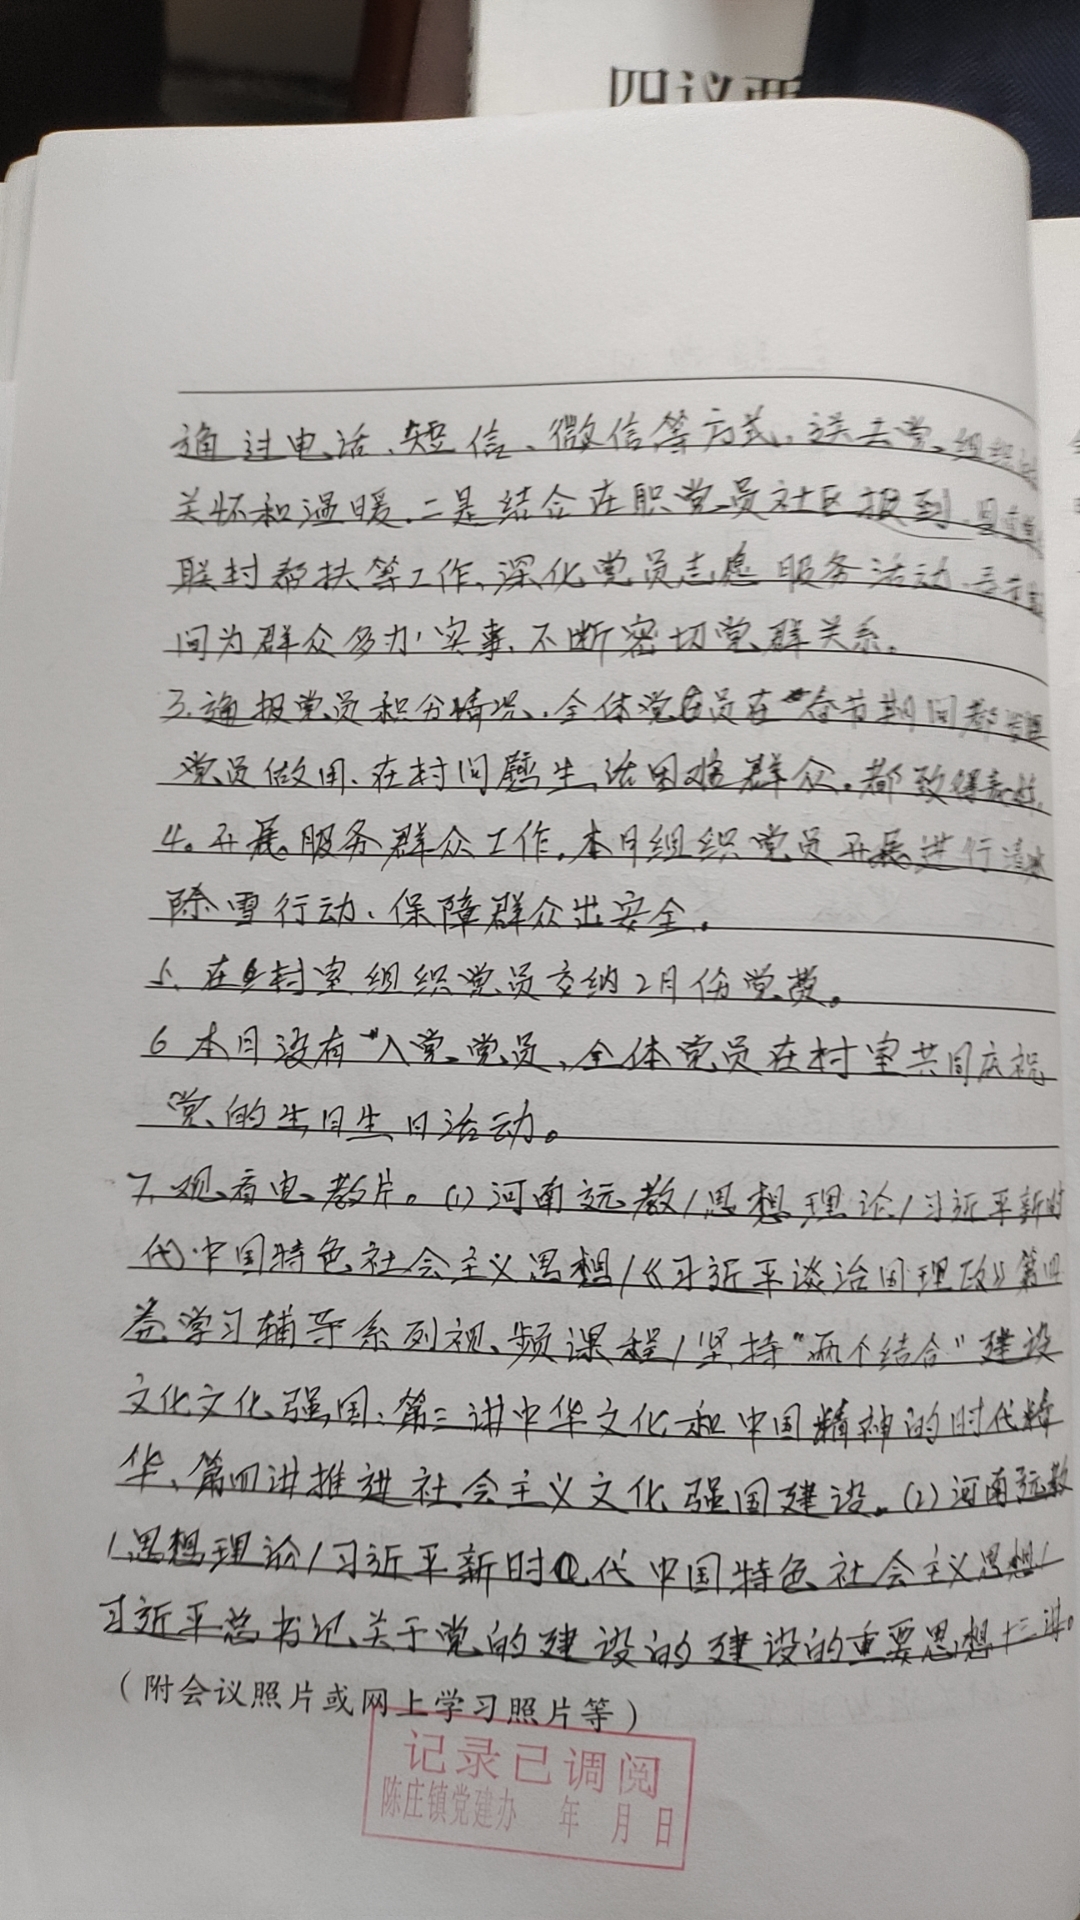 四议两
通过电话、短信、微信等方式,送去党组织的
关怀和温暖.二是结合在职党员社区报到.
联村帮扶等工作,深化党员志愿服务活动.
间为群众多办实事,不断密切党群关系.
3.通报党员积分情况.全体党员在春节期间都
党员做用.在村问题生活困难群众.都致
4.开展服务群众工作.本月组织党员开展进行清冰
除雪行动、保障群众出安全.
5.在村室组织党员交纳2月份党费.
6 本月没有入党党员,全体党员在村室共同庆祝
党的生日生日活动。
7.观看电教片。(1)河南远教/思想理论/习近平新时
代中国特色社会主义思想/《习近平谈治国理政》第四
卷学习辅导系列视频课程/坚持"两个结合"建设
文化文化强国:第三讲中华文化和中国精神的时代精
华、第四讲推进社会主义文化强国建设。(2)河南远教
/思想理论/习近平新时代中国特色社会主义思想/
习近平总书记关于党的建设的建设的重要思想十三讲。
(附会议照片或网上学习照片等)
记录已调阅
陈庄镇党建办 年 月 日